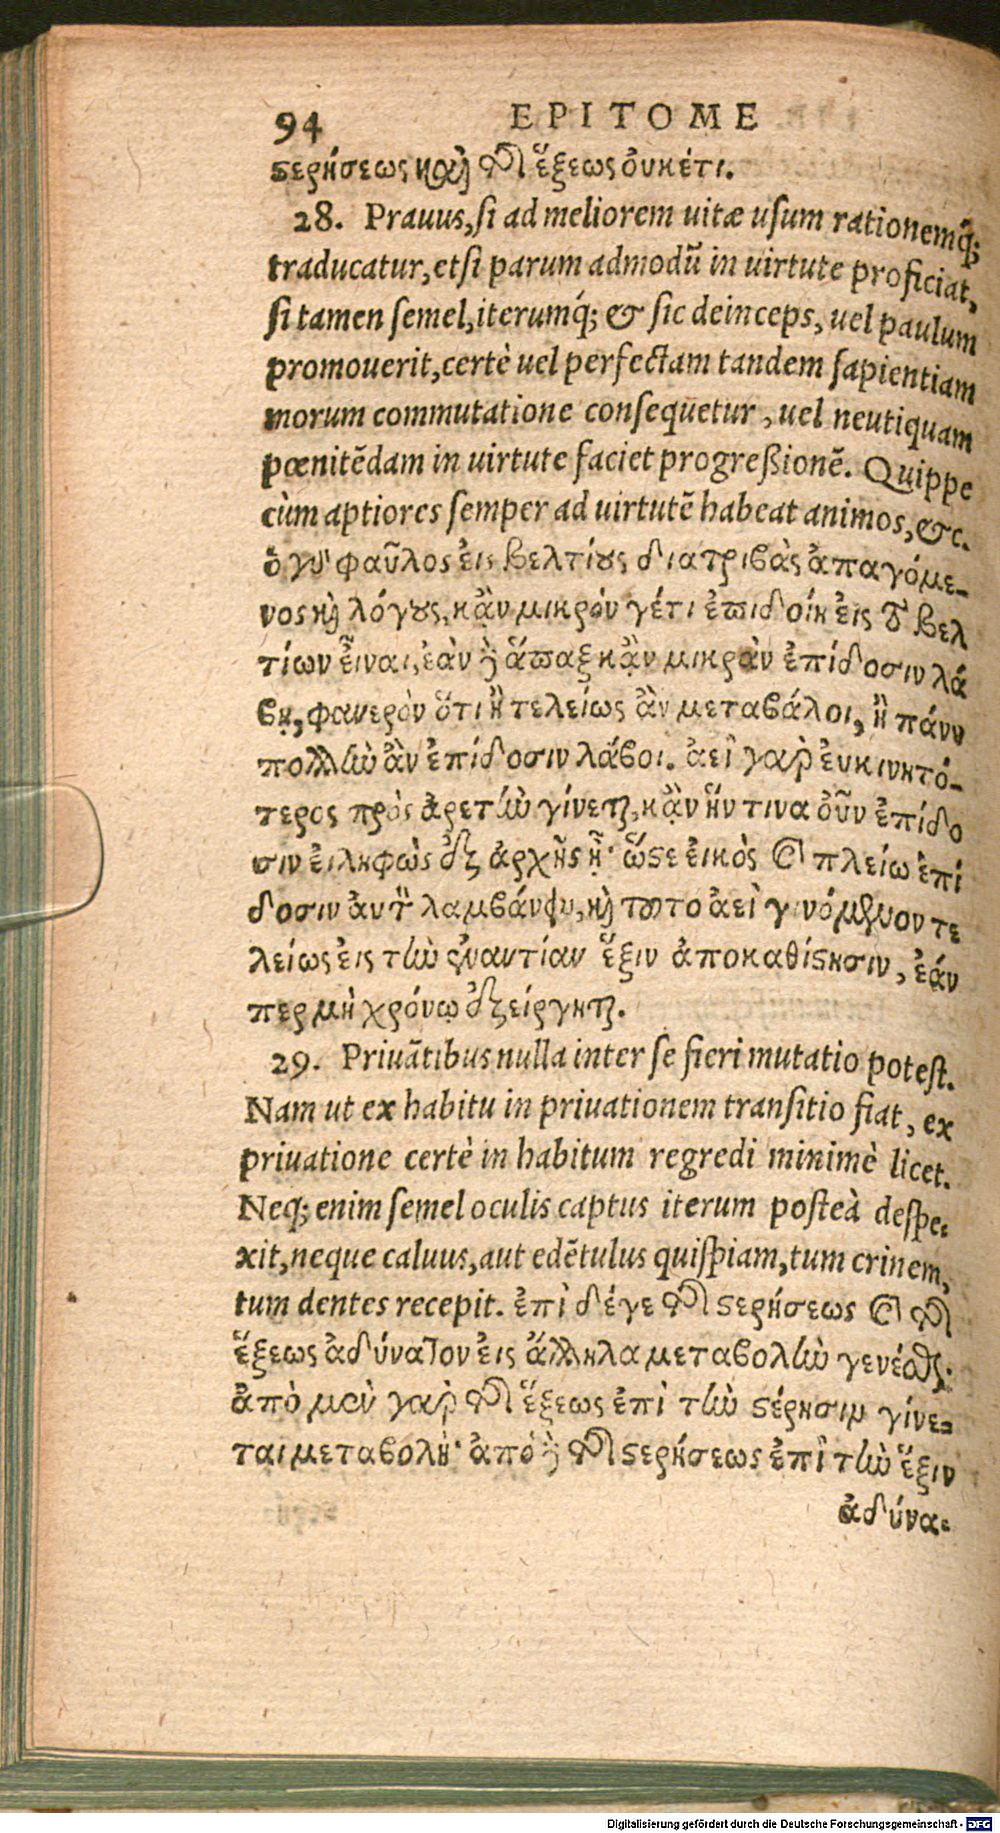 94 EPITOME
στερήσεως καὶ τῆς ἕξεως οὐκέτι.
28. Prauus, si ad meliorem uitæ usum rationemq́;
traducatur, etsi parum admodũ in uirtute proficiat,
si tamen semel, iterumq́; & sic deinceps, uel paulum
promouerit, certè uel perfectam tandem sapientiam
morum commutatione consequetur, uel neutiquam
pœnitẽdam in uirtute faciet progreßionẽ. Quippe
cùm aptiores semper ad uirtutẽ habeat animos, &c.
ὁ γὰρ φαῦλος εἰς βελτίους διατριβὰς ἀπαγόμε-
νος καὶ λόγους, κἂν μικρόν γέ τι ἐπιδοίη εἰς τὸ βελ
τίων εἶναι, ἐὰν δὲ ἅπαξ κἂν μικρὰν ἐπίδοσιν λά
βῃ, φανερὸν ὅτι ἢ τελείως ἂν μεταβάλοι, ἢ πάνυ
πολλὴν ἂν ἐπίδοσιν λάβοι. ἀεὶ γὰρ εὐκινητό-
τερος πρὸς ἀρετὴν γίνεται, κἂν ἥν τινα οὖν ἐπίδο
σιν εἰληφὼς ἐξ ἀρχῆς ᾖ· ὥστε εἰκὸς καὶ πλείω ἐπί
δοσιν αὐτὸν λαμβάνειν, καὶ τοῦτο ἀεὶ γινόμενον τε
λείως εἰς τὴν ἐναντίαν ἕξιν ἀποκαθίστησιν, ἐάν
περ μὴ χρόνῳ ἐξείργηται.
29. Priuãtibus nulla inter se fieri mutatio potest.
Nam ut ex habitu in priuationem transitio fiat, ex
priuatione certè in habitum regredi minimè licet.
Neq; enim semel oculis captus iterum posteà despe-
xit, neque caluus, aut edẽtulus quispiam, tum crinem,
tum dentes recepit. ἐπὶ δέ γε τῆς στερήσεως καὶ τῆς
ἕξεως ἀδύνατον εἰς ἄλληλα μεταβολὴν γενέσθαι·
ἀπὸ μὲν γὰρ τῆς ἕξεως ἐπὶ τὴν στέρησιν γίνε-
ται μεταβολή· ἀπὸ δὲ τῆς στερήσεως ἐπὶ τὴν ἕξιν
ἀδύνα-
Digitalisierung gefördert durch die Deutsche Forschungsgemeinschaft - DFG